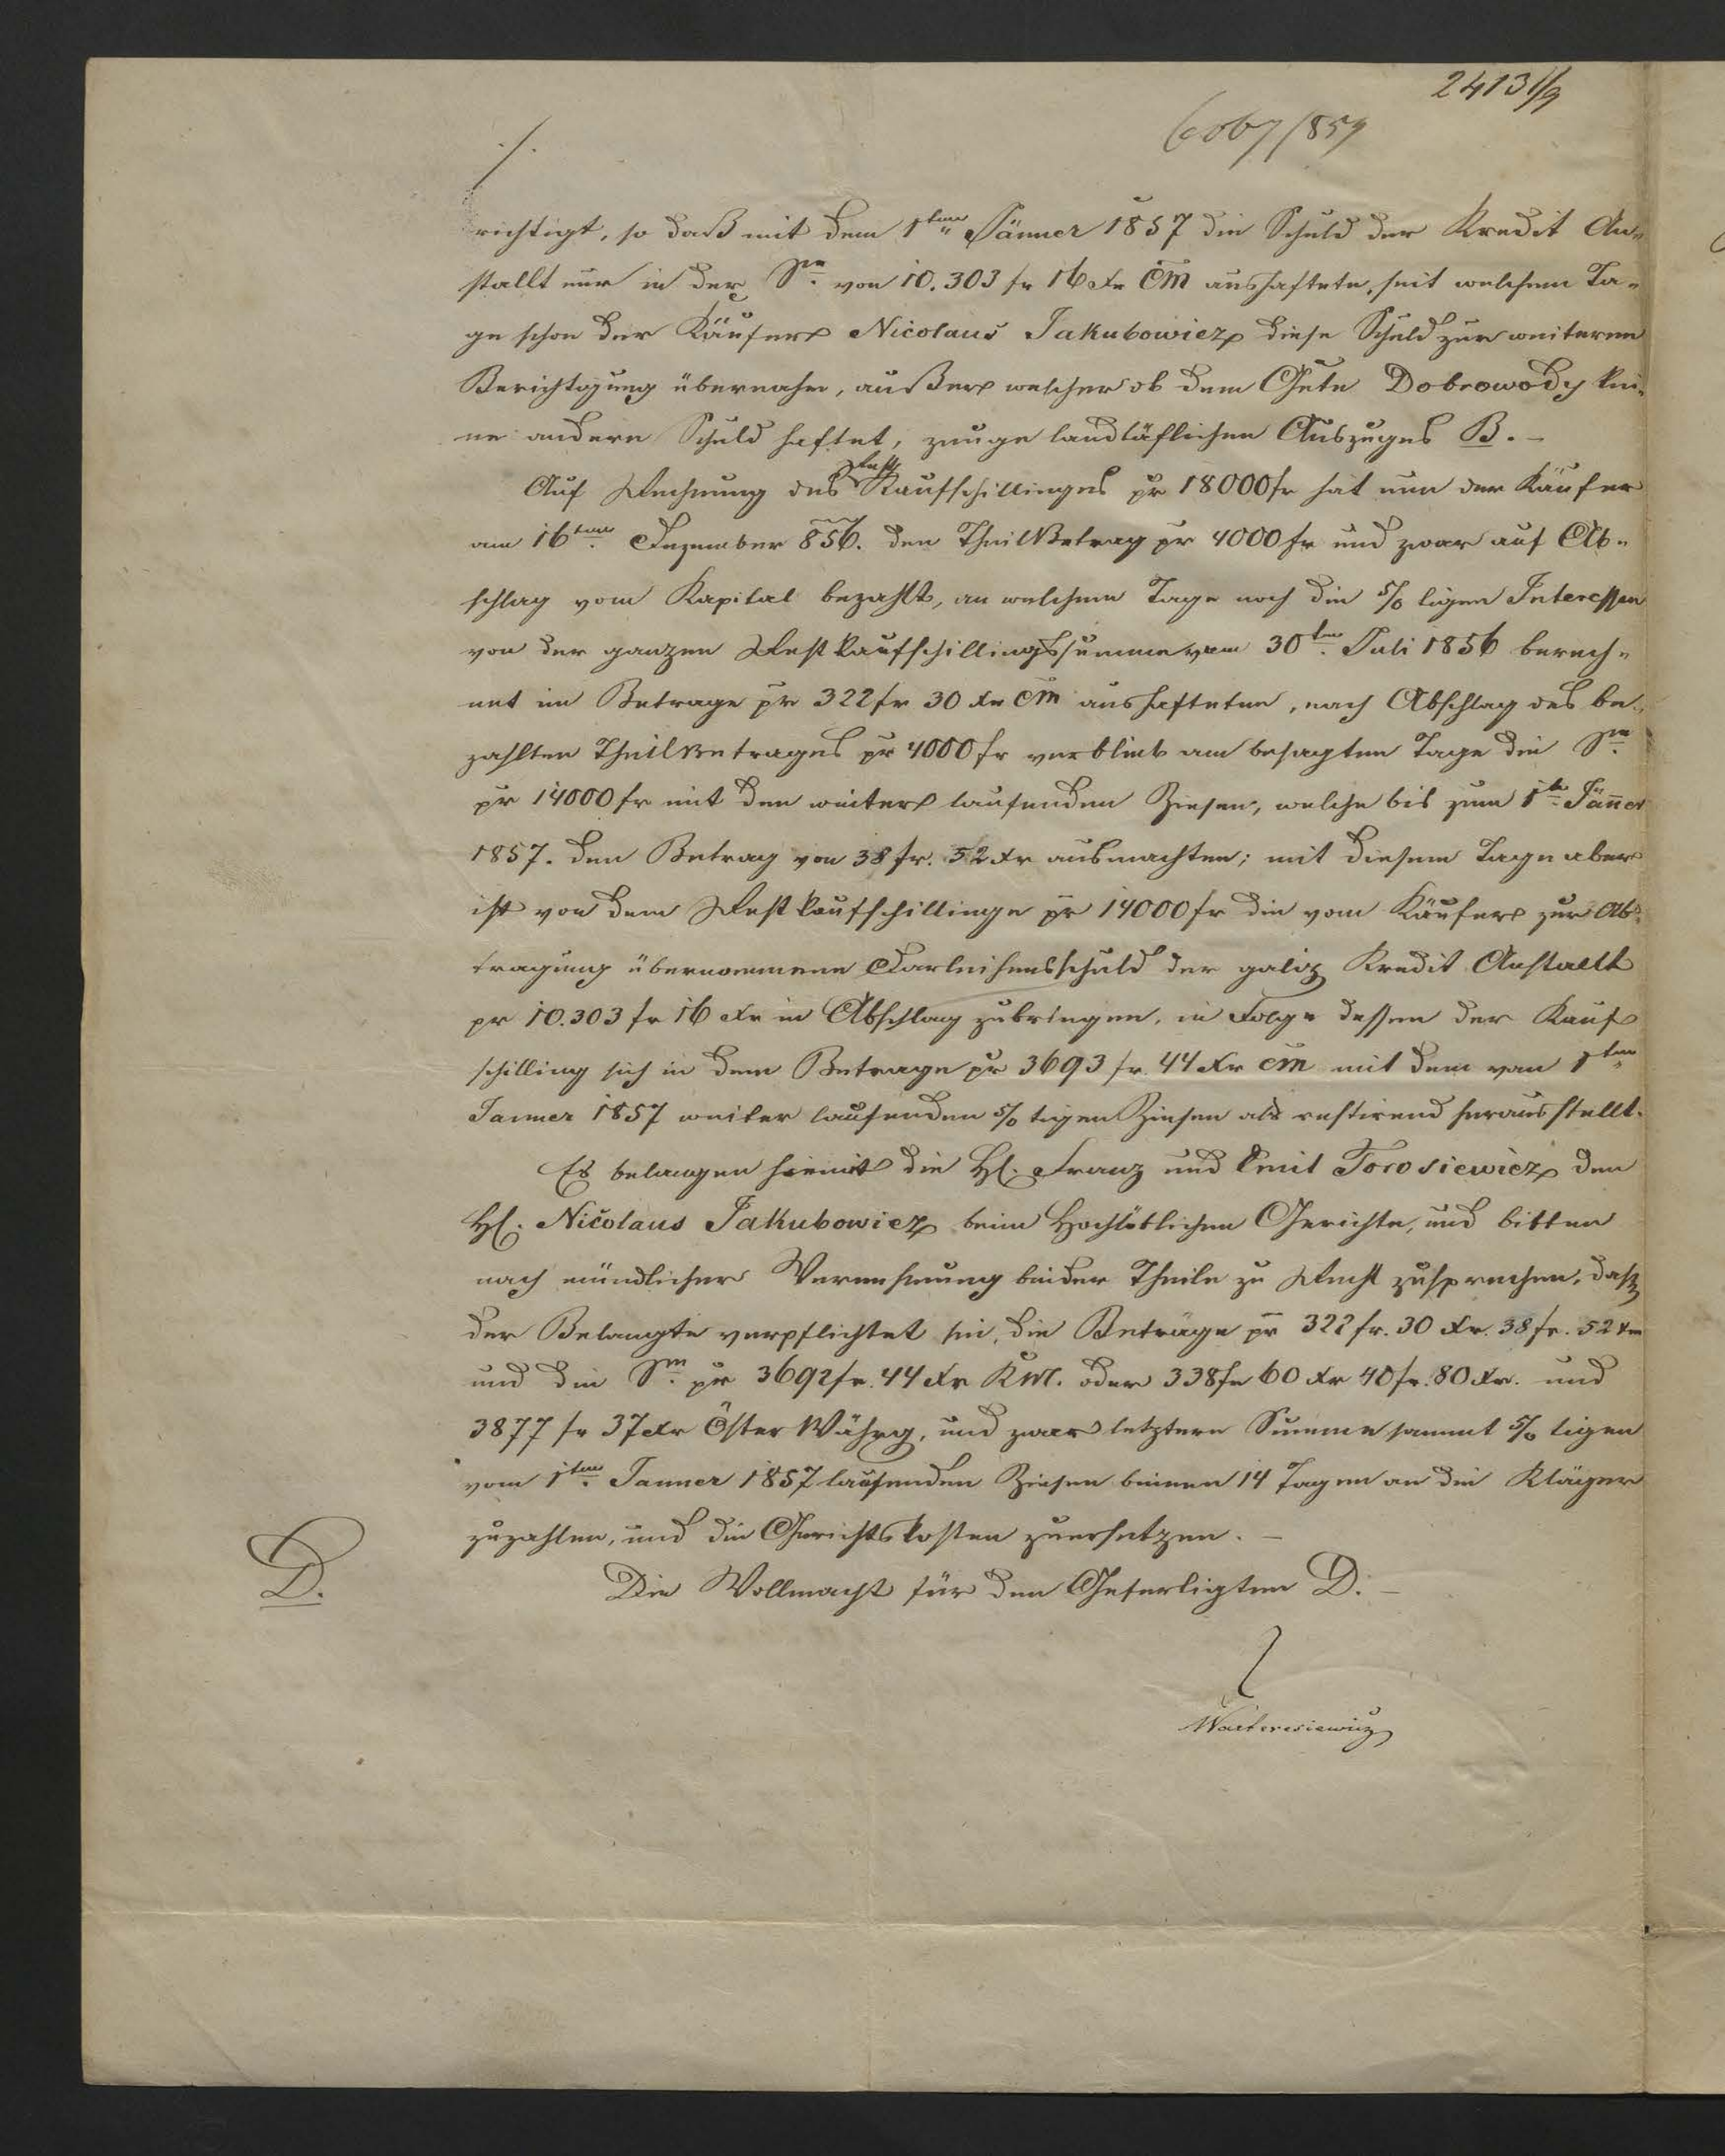 24131/9
6067/859
./.
richtigt, so daß mit dem 1ten Jänner 1857 die Schuld der Kredit An-
stallt nur in der Sm. von 10.303 fr 16 xr CM aushaftete, seit welchem Ta-
ge schon der Käufer Nicolaus Jakubowicz diese Schuld zur weiteren
Berichtigung übernahm, außer welcher ob dem Gute Dobrowody kei-
ne andere Schuld haftet, zeuge landtäflichen Auszuges B. –
Auf Rechnung des Rest Kaufschillinges pr 18000 fr hat nun der Käufer
am 16ten Dezember 856. den Theilbetrag pr 4000 fr und zwar auf Ab-
schlag vom Kapital bezahlt, an welchem Tage noch die 5/0 tigen Interessen
von der ganzen Restkaufschillingssumme vom 30ten Juli 1856 berech-
net im Betrage pr 322 fr 30 xr CM aushafteten, nach Abschlag des be-
zahlten Theilbetrages pr 4000 fr verblieb am besagten Tage die Sm.
pr 14000 fr mit den weiter laufenden Zinsen, welche bis zum 1ten Jänner
1857. den Betrag von 38 fr. 52 xr ausmachten; mit diesem Tage aber
ist von dem Restkaufschillinge pr 14000 fr die vom Käufer zur Ab-
tragung übernommene Darleihensschuld der galiz Kredit Anstallt
pr 10.303 fr 16 xr in Abschlag zubringen, in Folge dessen der Kauf
schilling sich in dem Betrage pr 3693 fr. 44 xr CM mit dem vom 1ten
Janner 1857 weiter laufenden 5/0 tigen Zinsen als restirend herausstellt.
Es belangen hiemit die H. Franz und Emil Torosiewicz den
H. Nicolaus Jakubowicz beim Hochlöblichen Gerichte, und bitten
nach mündlicher Vernehmung beider Theile zu Recht zusprechen, daß
der Belangte verpflichtet sei, die Beträge pr 322 fr. 30 xr. 38 fr. 52 xr
und die Sm. pr 3692 fr. 44 xr KM. oder 338 fr 60 xr 40 fr. 80 xr. und
3877 fr 37 xr Öster Währg, und zwar letztere Summe sammt 5/0 tigen
vom 1ten Janner 1857 laufenden Zinsen binnen 14 Tagen an die Kläger
zuzahlen, und die Gerichtskosten zuersetzen. –
D.
Die Vollmacht für den Gefertigten D. –
Warteresiewicz